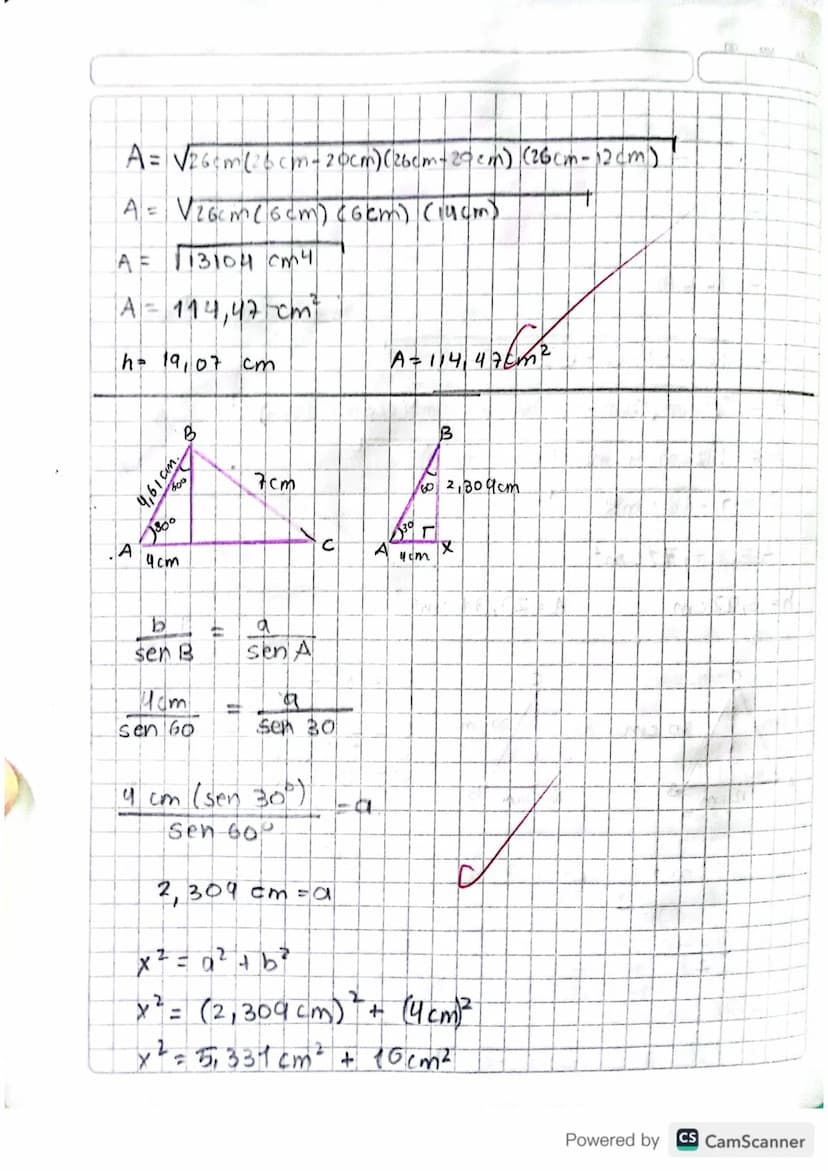 A = √26cm(26cm-20cm)(26cm-20cm)(26cm-12cm)
A = √26cm(6cm)(6cm)(14cm)
A = √13104 cm⁴
A = 114,47 cm²
h= 19,07 cm A=114,47cm²
B B
4,61cm. 60° 7cm 60 2,309cm
30
A 4cm C A 4cm X
b/sen B = a/sen A
4cm/sen 60 = a/sen 30
4 cm (sen 30°)/sen 60° = a
2,309 cm = a
x² = a² + b²
x² = (2,309cm)² + (4cm)²
x² = 5,331cm² + 16cm²
Powered by CS CamScanner